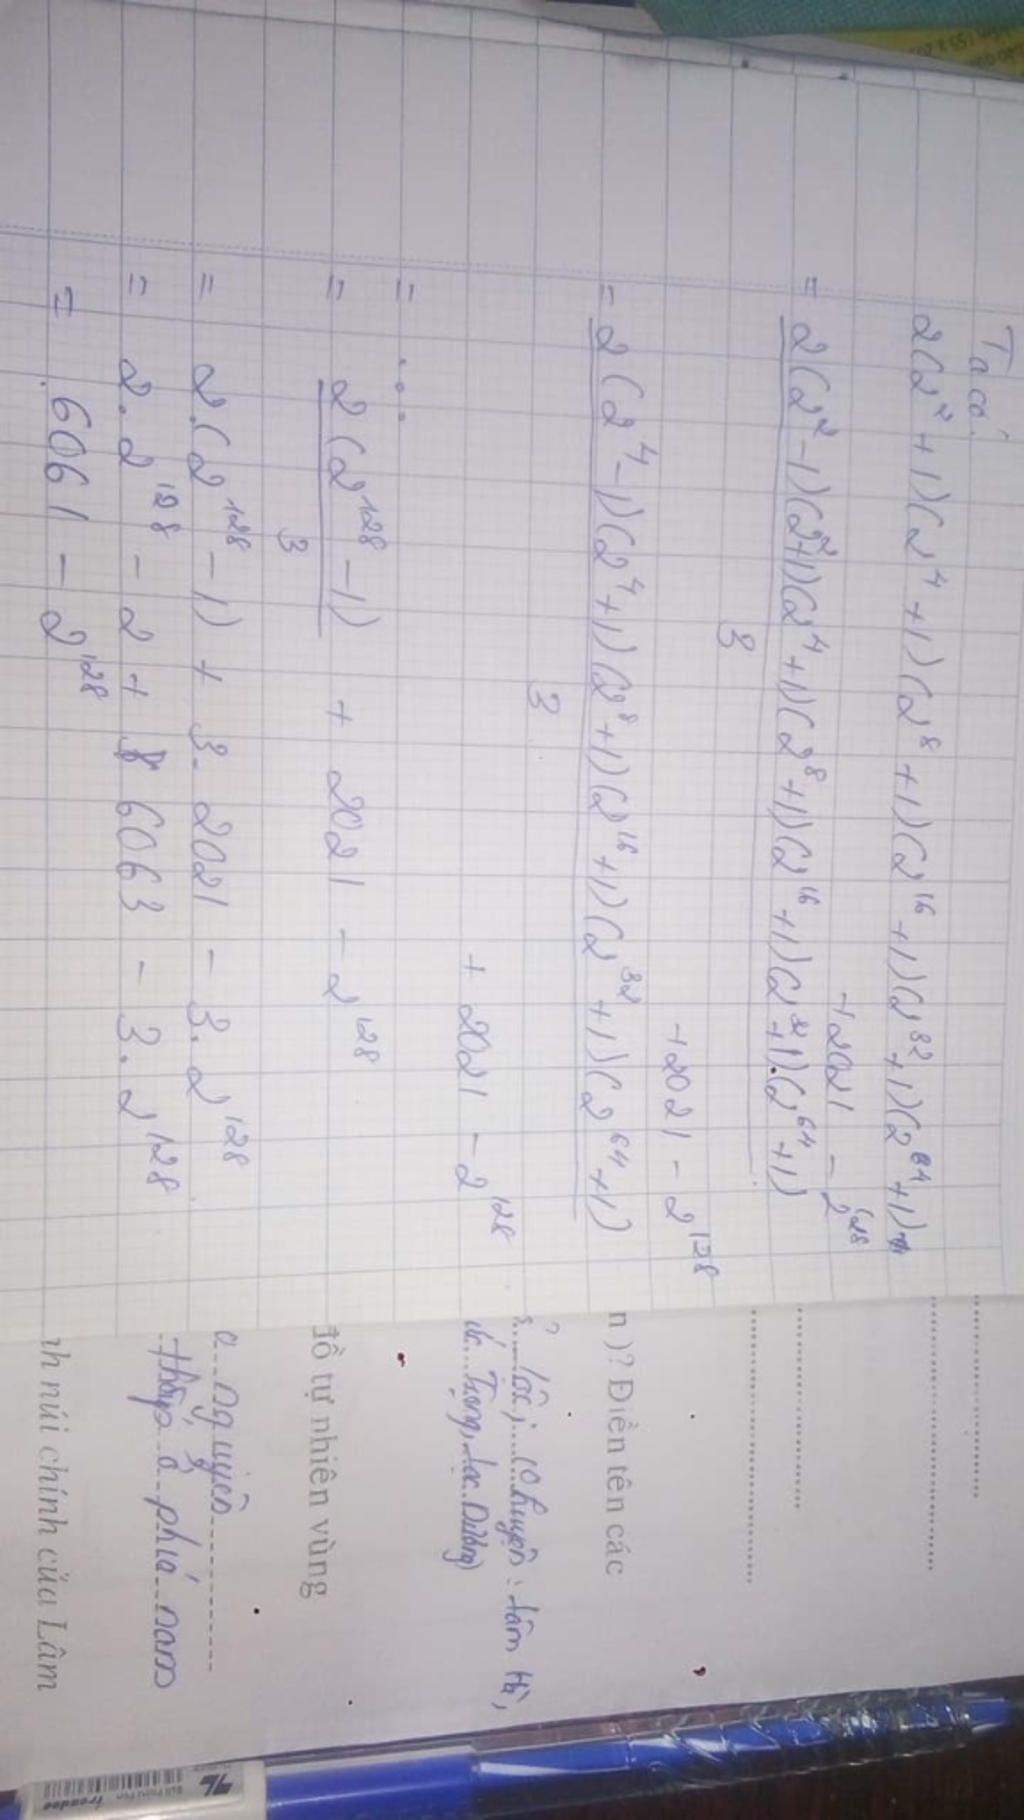 Ta có:
2(2² + 1)(2⁴ + 1)(2⁸ + 1)(2¹⁶ + 1)(2³² + 1)(2⁶⁴ + 1)
+ 2021 - 2¹²⁸
= 2(2² - 1)(2² + 1)(2⁴ + 1)(2⁸ + 1)(2¹⁶ + 1)(2³² + 1)(2⁶⁴ + 1)
3
+ 2021 - 2¹²⁸
= 2(2⁴ - 1)(2⁴ + 1)(2⁸ + 1)(2¹⁶ + 1)(2³² + 1)(2⁶⁴ + 1)
3
+ 2021 - 2¹²⁸
= ...
= 2(2¹²⁸ - 1) + 2021 - 2¹²⁸
3
= 2.(2¹²⁸ - 1) + 3. 2021 - 3. 2¹²⁸
= 2. 2¹²⁸ - 2 + 6063 - 3. 2¹²⁸
= 6061 - 2¹²⁸
n )? Điền tên các
huyện : Lâm Hà,
Trọng, Lạc Dương)
đồ tự nhiên vùng
nguyên
thấp ở phía nam
nh núi chính của Lâm